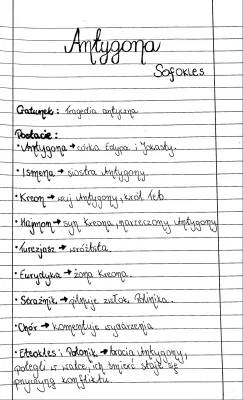 Antygona
Sofokles
Gatunek: tragedia antyczna
Postacie:
• Antygona → córka Edypa i Jokasty.
• Ismena → siostra Antygony.
• Kreon → wuj Antygony, król Teb.
• Hajmon → syn Kreona, narzeczony Antygony
• Terezjasz → wróżbita.
• Eurydyka → żona Kreona.
• Strażnik → pilnuje zwłok Polinika.
• Chór → komentuje wydarzenia
• Eteokles i Polinik → bracia Antygony,
polegli w walce, ich śmierć staje się
przyczyną konfliktu.